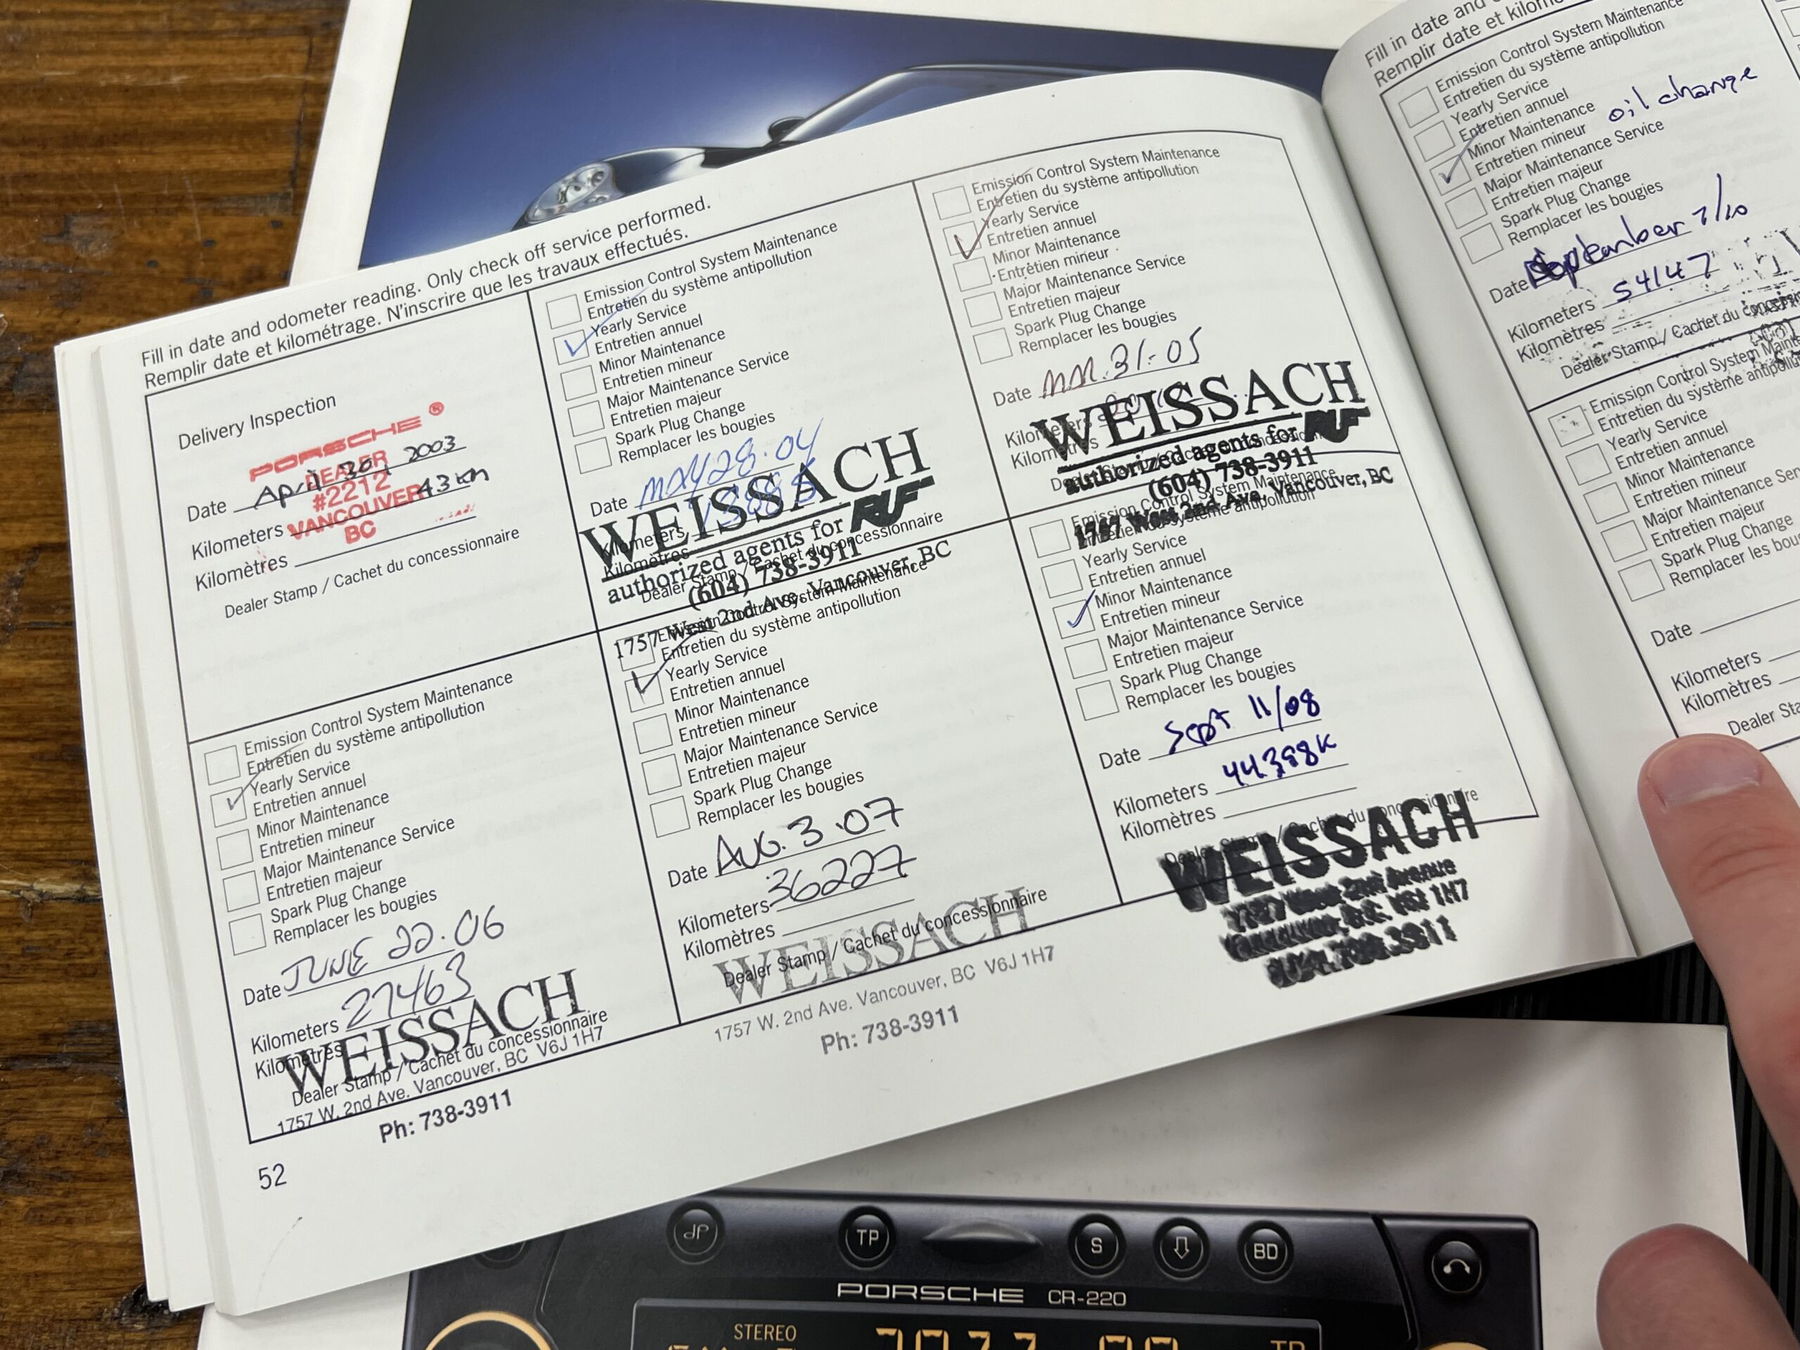 Fill in date and odometer reading. Only check off service performed.
Remplir date et kilométrage. N'inscrire que les travaux effectués.
Delivery Inspection
PORSCHE ®
DEALER
#2212
VANCOUVER
BC
Date April 30, 2003
Kilometers 43 km
Kilomètres
Dealer Stamp / Cachet du concessionnaire
Emission Control System Maintenance
Entretien du système antipollution
Yearly Service
Entretien annuel
Minor Maintenance
Entretien mineur
Major Maintenance Service
Entretien majeur
Spark Plug Change
Remplacer les bougies
Date MAY 28.04
Kilometers
Kilomètres
Dealer Stamp / Cachet du concessionnaire
WEISSACH
authorized agents for RUF
(604) 738-3911
1757 West 2nd Ave. Vancouver, BC
Emission Control System Maintenance
Entretien du système antipollution
Yearly Service
Entretien annuel
Minor Maintenance
Entretien mineur
Major Maintenance Service
Entretien majeur
Spark Plug Change
Remplacer les bougies
Date MAR. 31-05
Kilometers
Kilomètres
WEISSACH
authorized agents for RUF
(604) 738-3911
1757 West 2nd Ave. Vancouver, BC
Emission Control System Maintenance
Entretien du système antipollution
Yearly Service
Entretien annuel
Minor Maintenance
Entretien mineur
Major Maintenance Service
Entretien majeur
Spark Plug Change
Remplacer les bougies
Date JUNE 22.06
Kilometers 27463
Kilomètres
WEISSACH
Dealer Stamp / Cachet du concessionnaire
1757 W. 2nd Ave. Vancouver, BC V6J 1H7
Ph: 738-3911
Emission Control System Maintenance
Entretien du système antipollution
Yearly Service
Entretien annuel
Minor Maintenance
Entretien mineur
Major Maintenance Service
Entretien majeur
Spark Plug Change
Remplacer les bougies
Date AUG. 3.07
Kilometers 36227
Kilomètres
Dealer Stamp / Cachet du concessionnaire
WEISSACH
1757 W. 2nd Ave. Vancouver, BC V6J 1H7
Ph: 738-3911
Emission Control System Maintenance
système antipollution
Yearly Service
Entretien annuel
Minor Maintenance
Entretien mineur
Major Maintenance Service
Entretien majeur
Spark Plug Change
Remplacer les bougies
Date Sept 11/08
Kilometers 44398K
Kilomètres
Dealer Stamp / Cachet du concessionnaire
WEISSACH
1757 West 2nd Avenue
Vancouver, B.C. V6J 1H7
604.738.3911
52
Fill in date and
Remplir date et
Emission Control System Maintenance
Entretien du système antipollution
Yearly Service
Entretien annuel
Minor Maintenance
Entretien mineur oil change
Major Maintenance Service
Entretien majeur
Spark Plug Change
Remplacer les bougies
Date September 7/10
Kilometers 54147
Kilomètres
Dealer Stamp / Cachet du
Emission Control System
Entretien du système
Yearly Service
Entretien annuel
Minor Maintenance
Entretien mineur
Major Maintenance
Entretien majeur
Spark Plug Change
Remplacer les
Date
Kilometers
Kilomètres
Dealer
TP
S
BD
PORSCHE CR-220
STEREO
TP